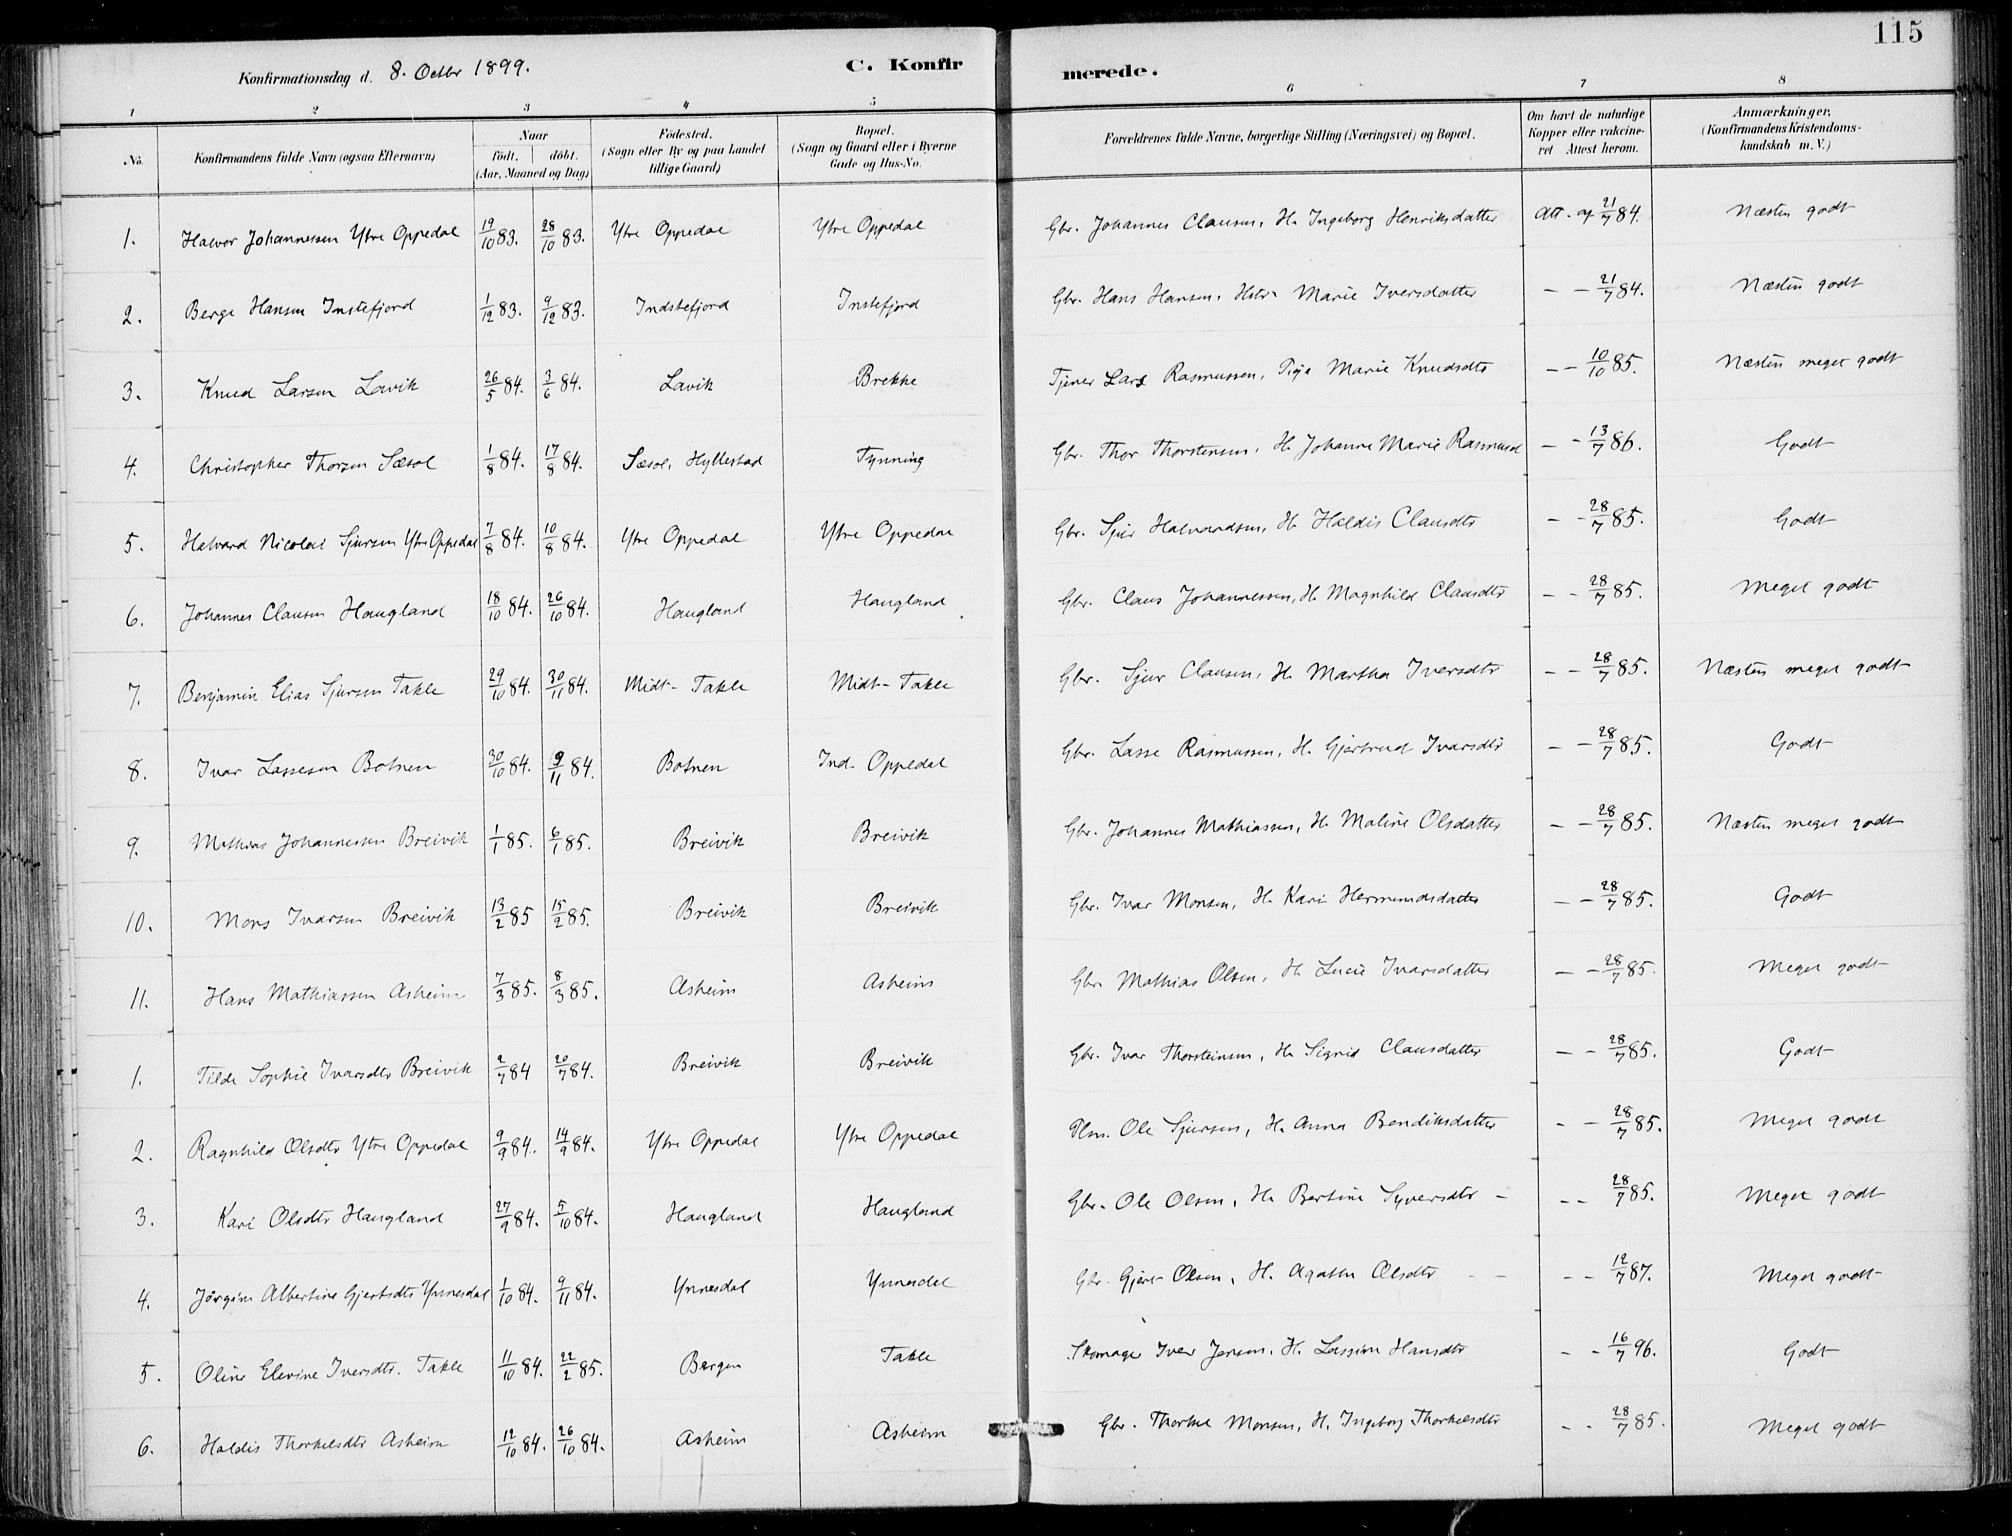 115
Konfirmationsdag d. 8. Octbr 1899. C. Konfir merede.
1 2 3 4 5 6 7 8
No. Konfirmandens fulde Navn (ogsaa Efternavn) Naar födt. döbt. (Aar, Maaned og Dag) Födested. (Sogn eller By og paa Landet tillige Gaard) Bopæl. (Sogn og Gaard eller i Byerne Gade og Hus-No. Forældrenes fulde Navne, borgerlige Stilling (Næringsvei) og Bopæl. Om havt de naturlige Kopper eller vakcineret Attest herom. Anmærkninger. (Konfirmandens Kristendomskundskab m. V.)
1. Halvor Johannessen Ytre Oppedal 19/10 83. 28/10 83. Ytre Oppedal Ytre Oppedal Gbr. Johannes Clausen, H. Ingeborg Henriksdatter Att. af 21/7 84. Næsten godt
2. Berge Hansen Instefjord 1/12 83. 9/12 83. Indstefjord Instefjord Gbr. Hans Hansen, Hstr. Marie Iversdatter - - 21/7 84. Næsten godt
3. Knud Larsen Lavik 26/5 84. 3/6 84. Lavik Brekke Tjener Lars Rasmussen, Pige Marie Knudsdtr - - 10/10 85. Næsten meget godt
4. Christopher Thorsen Sæsol 1/8 84. 17/8 84. Sæsol, Hyllestad Tynning Gbr. Thor Thorstensen, H. Johanne Marie Rasmusd - - 13/7 86. Godt
5. Halvard Nicolai Sjursen Ytre Oppedal 7/8 84. 10/8 84. Ytre Oppedal Ytre Oppedal Gbr. Sjur Halvardsen, H. Haldis Clausdtr - - 28/7 85. Godt
6. Johannes Clausen Haugland 18/10 84. 26/10 84. Haugland Haugland Gbr. Claus Johannessen, H. Magnhild Clausdtr - - 28/7 85. Meget godt
7. Benjamin Elias Sjursen Takle 29/10 84. 30/11 84. Midt-Takle Midt-Takle Gbr. Sjur Clausen, H. Martha Iversdtr - - 28/7 85. Næsten meget godt
8. Ivar Lassesen Botnen 30/10 84. 9/11 84. Botnen Ind. Oppedal Gbr. Lasse Rasmussen, H. Gjertrud Ivarsdtr - - 28/7 85. Godt
9. Mathias Johannessen Breivik 1/1 85. 6/1 85. Breivik Breivik Gbr. Johannes Mathiassen, H. Maline Olsdatter - - 28/7 85. Næsten meget godt
10. Mons Ivarsen Breivik 13/2 85 15/2 85. Breivik Breivik Gbr. Ivar Monsen, H. Kari Hermundsdatter - - 28/7 85. Godt
11. Hans Mathiassen Asheim 7/3 85. 8/3 85. Asheim Asheim Gbr. Mathias Olsen, H. Lucie Ivarsdatter - - 28/7 85. Meget godt
1. Tilde Sophie Ivarsdtr Breivik 2/7 84 20/7 84. Breivik Breivik Gbr. Ivar Thorsteinsen, H. Sigrid Clausdatter - - 28/7 85. Godt
2. Ragnhild Olsdtr Ytre Oppedal 9/9 84. 14/9 84. Ytre Oppedal Ytre Oppedal Plm. Ole Sjursen, H. Anna Bendiksdatter - - 28/7 85. Meget godt
3. Kari Olsdtr Haugland 27/9 84. 5/10 84. Haugland Haugland Gbr. Ole Olsen, H. Bertine Syversdtr - - - 28/7 85. Meget godt
4. Jörgine Albertine Gjertsdtr Ynnesdal 1/10 84. 9/11 84. Ynnesdal Ynnesdal Gbr. Gjert Olsen, H. Agathe Olsdtr - - - - 12/7 87. Meget godt
5. Oline Elevine Iversdtr. Takle 11/10 84. 22/2 85. Bergen Takle Skomager Iver Jensen, H. Lassine Hansdtr - - 16/7 96. Godt
6. Haldis Thorkelsdtr Asheim 12/10 84. 26/10 84. Asheim Asheim Gbr. Thorkel Monsen, H. Ingeborg Thorkelsdtr - - 28/7 85. Meget godt